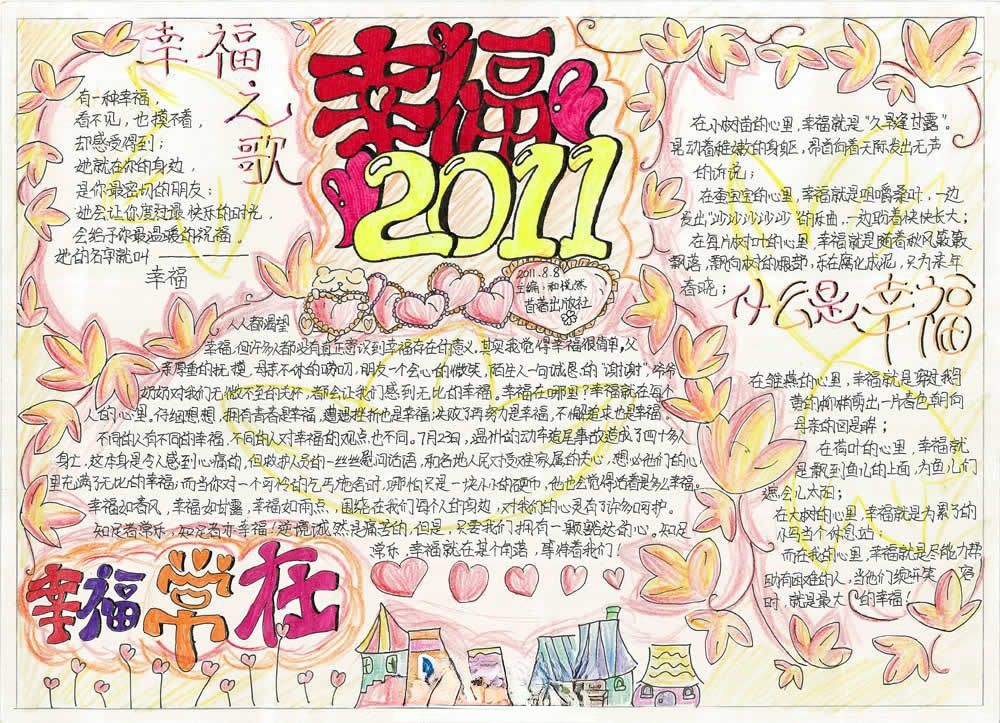 幸福之歌
有一种幸福，
看不见，也摸不着，
却感受得到；
她就在你的身边，
是你最密切的朋友；
她会让你度过最快乐的时光，
会给予你最温暖的祝福。
她的名字就叫
幸福
幸福
2011
2011.8.8
主编：和悦然
首著出版社
人人都渴望
幸福，但许多人都没有真正意识到幸福存在的意义。其实我觉得幸福很简单。父
亲厚重的抚摸，母亲不休的唠叨，朋友一个会心的微笑，陌生人一句诚恳的“谢谢”，爷爷
奶奶对我们无微不至的关怀，都会让我们感到无比的幸福。幸福在哪里？幸福就在每个
人的心里。仔细想想，拥有青春是幸福，遭遇挫折也是幸福，失败了再努力是幸福，不懈追求也是幸福。
不同的人有不同的幸福，不同的人对幸福的观点也不同。7月23日，温州的动车追尾事故造成了四十多人
身亡，这本身是令人感到心痛的，但救护人员的一丝丝慰问话语，和各地人民对受难家属的关心，想必他们的心
里在满了无比的幸福；而当你对一个可怜的乞丐施舍时，哪怕只是一块小小的硬币，他也会觉得活着是多么幸福。
幸福如春风，幸福如甘露，幸福如雨点，围绕在我们每个人的身边，对我们的心灵有了许多呵护。
知足者常乐，知足者亦幸福！悲惋诚然是痛苦的，但是，只要我们拥有一颗豁达的心。知足
常乐，幸福就在某个角落，等待着我们！
在小树苗的心里，幸福就是“久旱逢甘露”。
晃动着稚嫩的身躯，昂首向着天际发出无声
的诉说；
在蚕宝宝的心里，幸福就是咀嚼桑叶，一边
发出“沙沙沙沙沙”的乐曲，一边盼着快快长大；
在每片树叶的心里，幸福就是随着秋风簌簌
飘落，飘向树的根部，乐在腐化成泥，只为来年
春晓；
什么是幸福
在雏燕的心里，幸福就是穿过我
黄的柳梢剪出一片春色朝向
母亲的回眸；
在荷叶的心里，幸福就
是飘到鱼儿的上面，为鱼儿们
遮会儿太阳；
在大树的心里，幸福就是为累了的
小鸟当个休息站；
而在我的心里，幸福就是尽能力帮
助有困难的人，当他们绽讲笑容
时，就是最大的幸福！
幸福常在